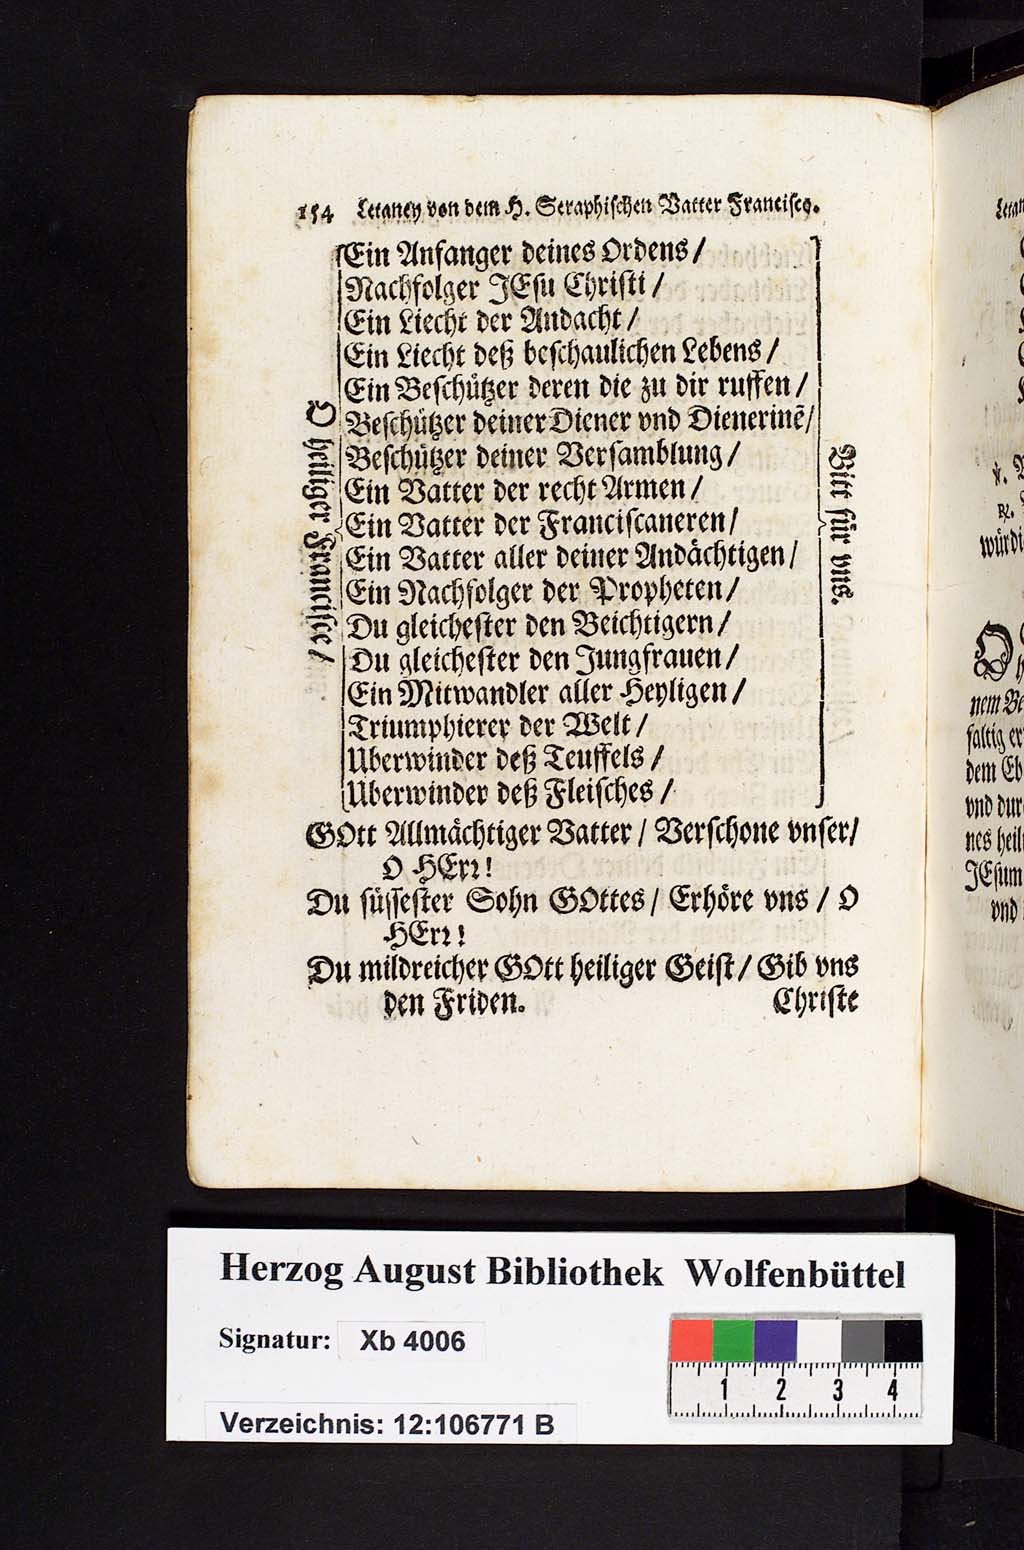 154 Letaney von dem H. Seraphischen Vatter Francisco.
O heiliger Francisce/
Ein Anfanger deines Ordens/
Nachfolger JEsu Christi/
Ein Liecht der Andacht/
Ein Liecht deß beschaulichen Lebens/
Ein Beschützer deren die zu dir ruffen/
Beschützer deiner Diener vnd Dienerinē/
Beschützer deiner Versamblung/
Ein Vatter der recht Armen/
Ein Vatter der Franciscaneren/
Ein Vatter aller deiner Andächtigen/
Ein Nachfolger der Propheten/
Du gleichester den Beichtigern/
Du gleichester den Jungfrauen/
Ein Mitwandler aller Heyligen/
Triumphierer der Welt/
Uberwinder deß Teuffels/
Uberwinder deß Fleisches/
Bitt für vns.
GOtt Allmächtiger Vatter/ Verschone vnser/
O HErr!
Du süssester Sohn GOttes/ Erhöre vns/ O
HErr!
Du mildreicher GOtt heiliger Geist/ Gib vns
den Friden. Christe
würdi
nem Be
faltig er
dem Eb
vnd dur
nes heil
JEsum
vnd
Herzog August Bibliothek Wolfenbüttel
Signatur: Xb 4006
1 2 3 4
Verzeichnis: 12:106771 B